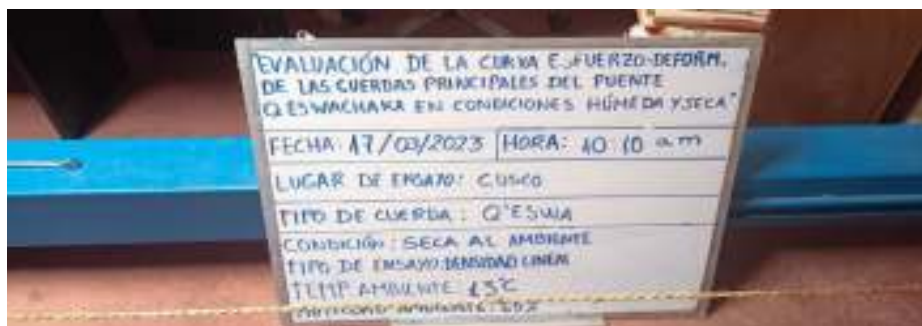 "EVALUACIÓN DE LA CURVA ESFUERZO-DEFORM.
DE LAS CUERDAS PRINCIPALES DEL PUENTE
Q'ESWACHAKA EN CONDICIONES HÚMEDA Y SECA"
FECHA: 17/03/2023 HORA: 10 10 am
LUGAR DE ENSAYO: CUSCO
TIPO DE CUERDA: Q'ESWA
CONDICIÓN: SECA AL AMBIENTE
TIPO DE ENSAYO: DENSIDAD LINEAL
TEMP. AMBIENTE
AMBIENTE: